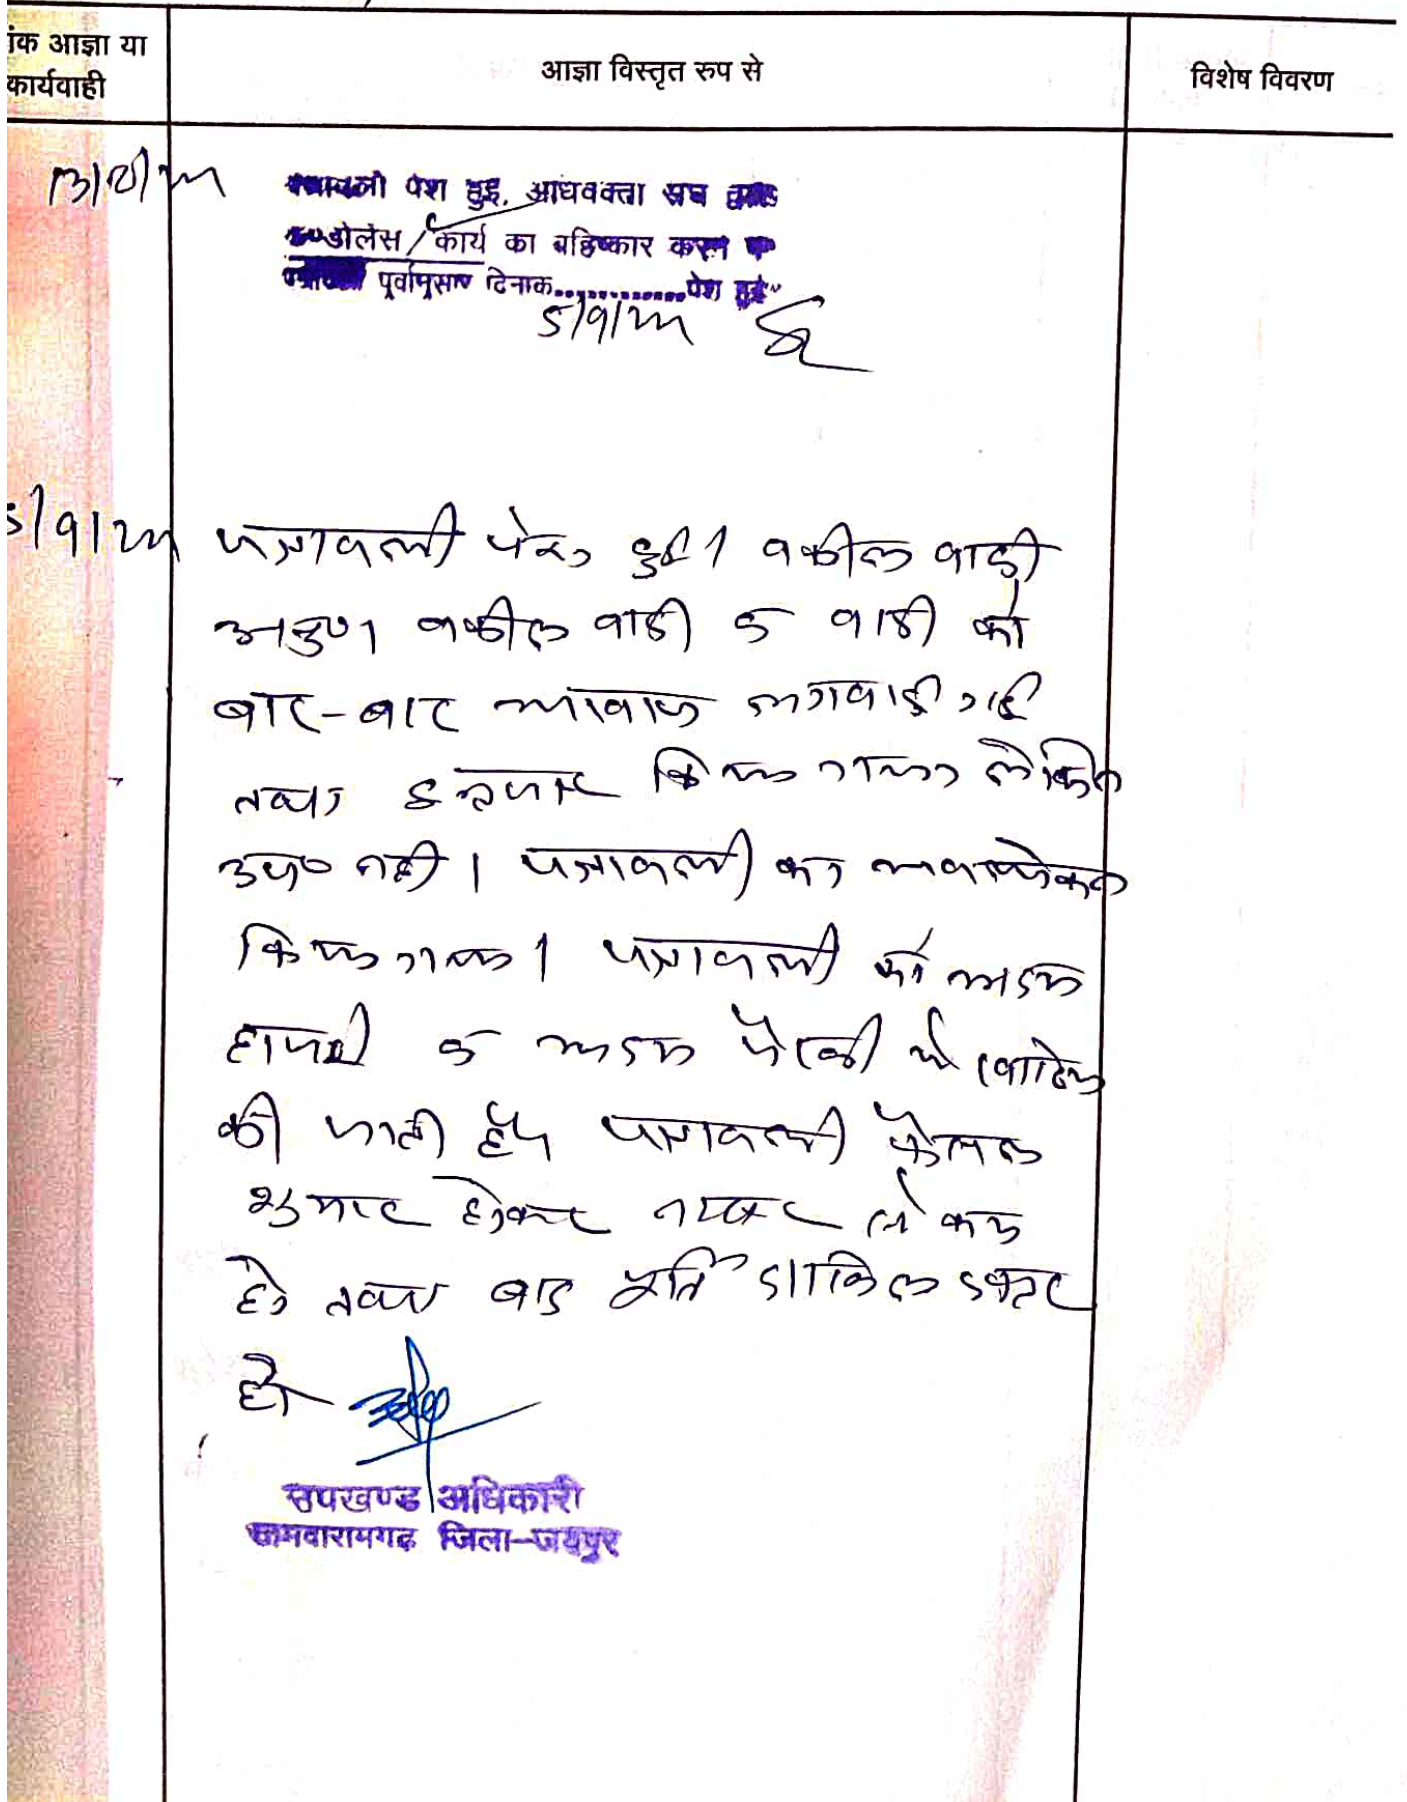 ांक आज्ञा या
कार्यवाही
आज्ञा विस्तृत रुप से
विशेष विवरण
पेश हुई. अधिवक्ता संघ द्वारा
कंडोलेंस / कार्य का बहिष्कार करने
पूर्वानुसार दिनांक.............पेश हुई
5/9/22
5/9/22 पत्रावली पेश हुई। वकील वादी
अनुप। वकील वादी व वादी को
बार-बार आवाज लगवाई गई
तथा इन्तजार किया गया लेकिन
उप० नहीं। पत्रावली का अवलोकन
किया गया। पत्रावली को अदम
हाजरी व अदम पैरवी में खारिज
की जाती है। पत्रावली फैसल
शुमार होकर नम्बर से कम
हो तथा बाद पूर्ति दाखिल दफ्तर
हो
उपखण्ड अधिकारी
जमवारामगढ़ जिला-जयपुर